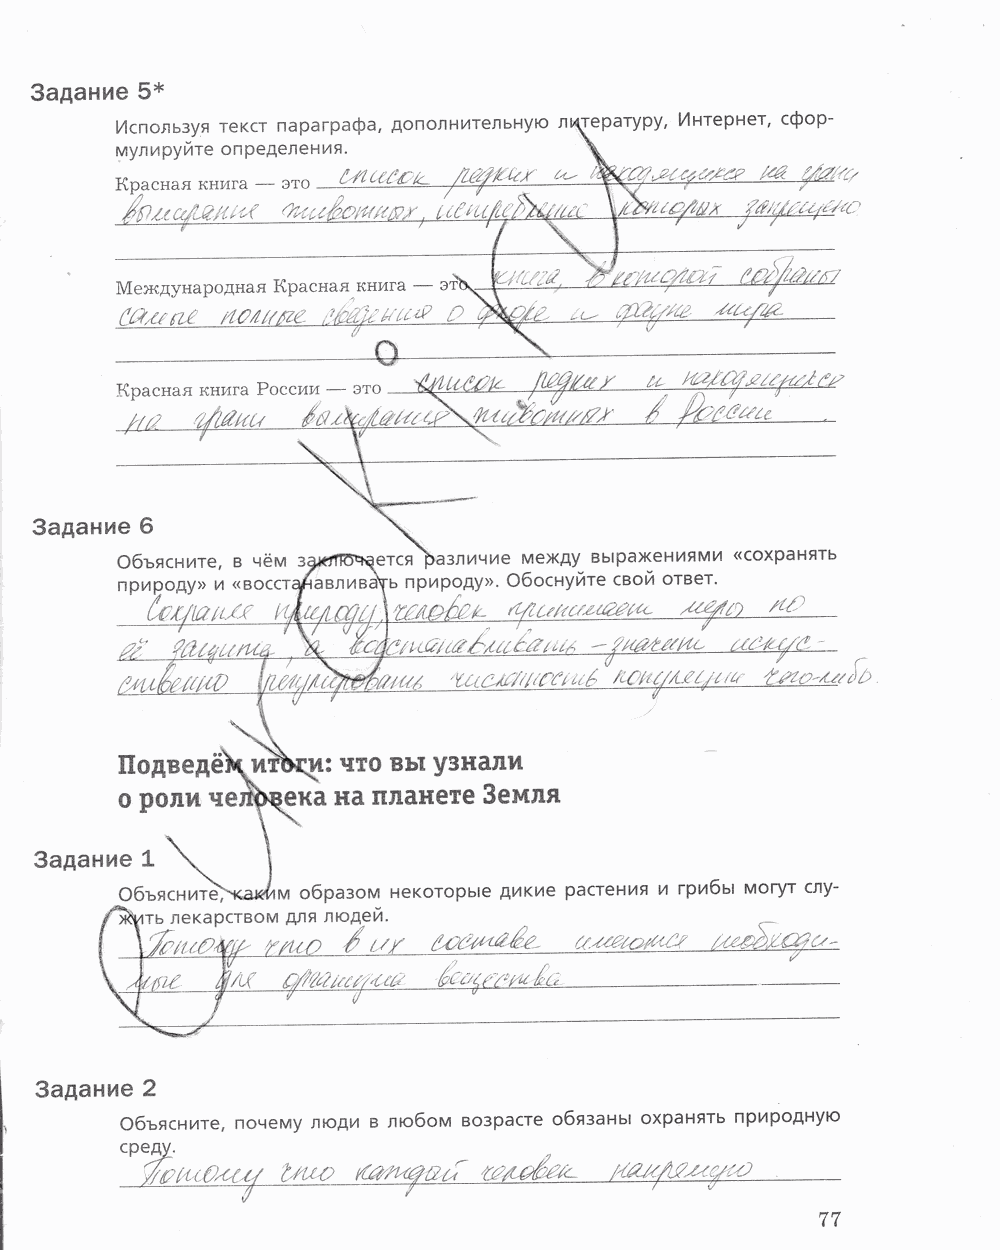 Задание 5*
Используя текст параграфа, дополнительную литературу, Интернет, сфор-
мулируйте определения.
Красная книга — это список редких и находящихся на грани
вымирание животных, истребление которых запрещено
Международная Красная книга — это книга, в которой собраны
самые полные сведения о флоре и фауне мира
Красная книга России — это список редких и находящихся
на грани вымирания животных в России.
Задание 6
Объясните, в чём заключается различие между выражениями «сохранять
природу» и «восстанавливать природу». Обоснуйте свой ответ.
Сохраняя природу, человек принимает меры по
её защите, а восстанавливать – значит искус-
ственно регулировать численность популяции чего-либо.
Подведём итоги: что вы узнали
о роли человека на планете Земля
Задание 1
Объясните, каким образом некоторые дикие растения и грибы могут слу-
жить лекарством для людей.
Потому что в их составе имеются необходи-
мые для организма вещества
Задание 2
Объясните, почему люди в любом возрасте обязаны охранять природную
среду.
Потому что каждый человек напрямую
77